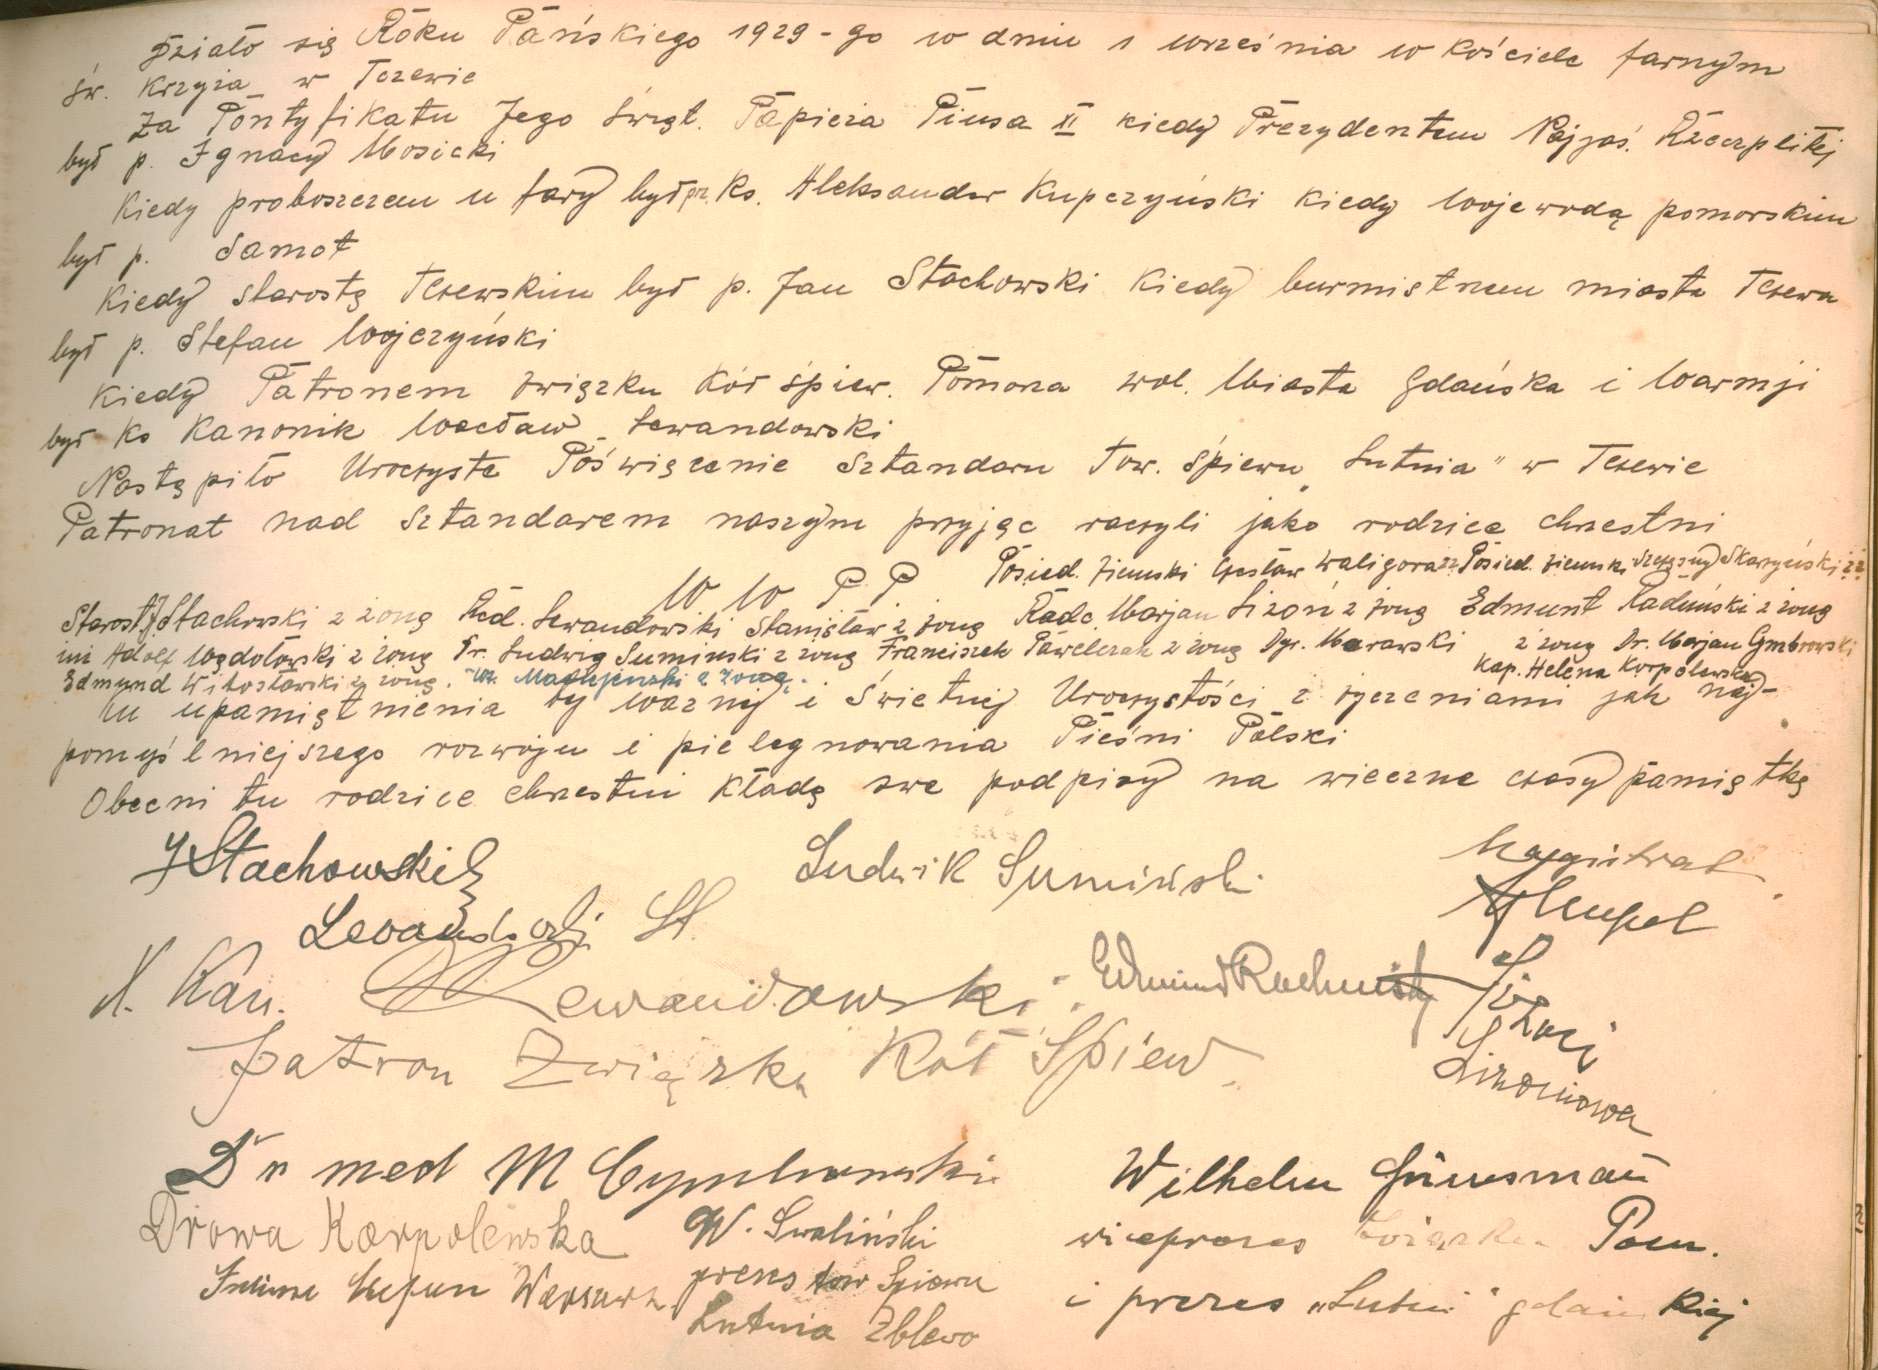 Działo się Roku Pańskiego 1929-go w dniu 1 września w kościele farnym
św. Krzyża w Tczewie
Za Pontyfikatu Jego Święt. Papieża Piusa XI kiedy Prezydentem Najjaś. Rzeczplitej
był p. Ignacy Mosicki
Kiedy proboszczem u fary był prz. Ks. Aleksander Kupczyński kiedy Wojewodą pomorskim
był p. Lamot
Kiedy starostą Tczewskim był p. Jan Stachowski kiedy burmistrzem miasta Tczewa
był p. Stefan Wojczyński
Kiedy Patronem związku Kół śpiew. Pomorza wol. Miasta Gdańska i Warmji
był Ks Kanonik Wacław Lewandowski
Nastąpiło Uroczyste Poświęcenie Sztandaru Tow. Śpiewu „Lutnia" w Tczewie
Patronat nad sztandarem naszym przyjąć raczyli jako rodzice chrzestni
W W P P Posied. ziemski Czesław Waligora z ż. Posied. ziemski Szczęsny Skarzyński z ż
Starosta J Stachowski z żoną Red. Lewandowski Stanisław z żoną Radc. Marjan Lizoń z żoną Edmunt Raduński z żoną
Adolf Wądołowski z żoną Dr. Ludwig Sumiński z żoną Franciszek Pawelczak z żoną Dyr. Murawski z żoną Dr. Marjan Cymbrowski
Edmund Witosławski z żoną. Maciejewski z żoną. Kap. Helena Korpolewska
Ku upamiętnienia tej Ważnej i Świetnej Uroczystości z życzeniami jak naj-
pomyślniejszego rozwoju i pielegnowania Pieśni Polski
Obecni tu rodzice chrzestni kładą swe podpisy na wieczne czasy pamiątkę
J Stachowski
Ludwik Sumiński
Magistrat
Hempel
Lewandowski St.
X. Kan. Lewandowski.
Patron Związku Kół Śpiew.
Lizoń
Lizoniowa
Dr med M Cymbrowski
Wilhelm Grimsmann
Drowa Karpolewska
W. Swaliński
wiceprezes Związku Pom.
Stefan Warszawa
prezes tow Śpiewu
i prezes „Lutni" gdańskiej
Lutnia Zblewo